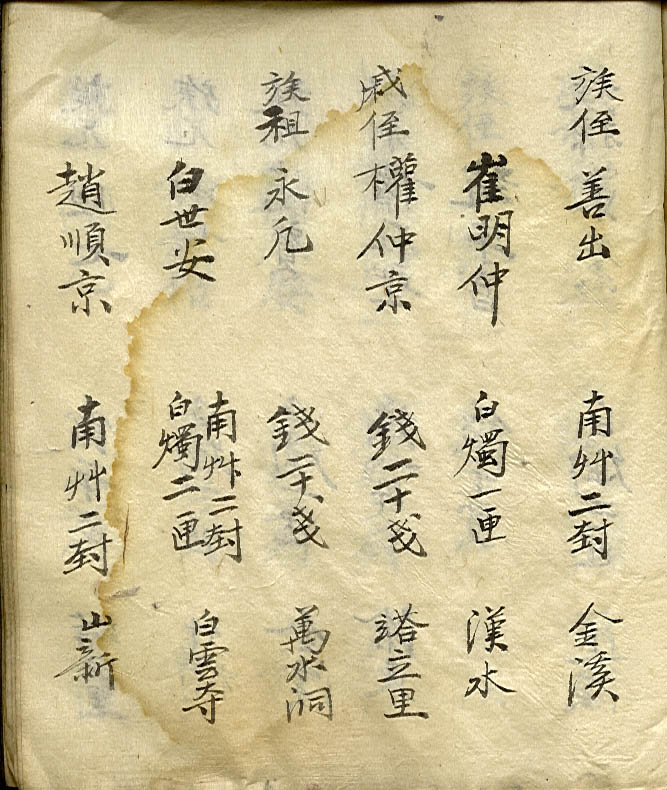 族侄 善出 南艸二封 金溪
崔明仲 白燭一匣 漢水
戚侄 權仲京 錢二十戔 塔立里
族祖 永凡 錢二十戔 萬水洞
白世安 南艸二封 白燭二匣 白雲寺
趙順京 南艸二封 山新